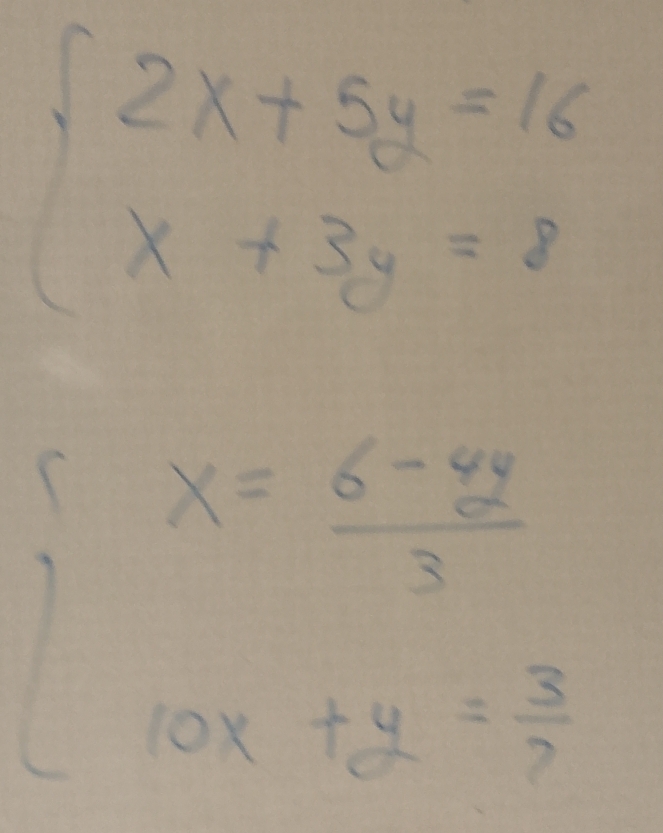 2x + 5y = 16
x + 3y = 8
x = (6 - 4y)/3
10x + y =